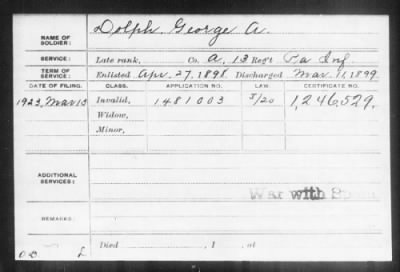 NAME OF SOLDIER: Dolph, George A.
SERVICE: Late rank, Co. A, 13 Reg't Pa Inf.
TERM OF SERVICE: Enlisted Apr. 27, 1898, Discharged Mar. 11, 1899.
DATE OF FILING. CLASS. APPLICATION NO. LAW. CERTIFICATE NO.
1923, Mar 13 Invalid, 1481003 3/20 1,246,529.
Widow,
Minor,
ADDITIONAL SERVICES:
War with Spain
REMARKS:
Died , 1 , at